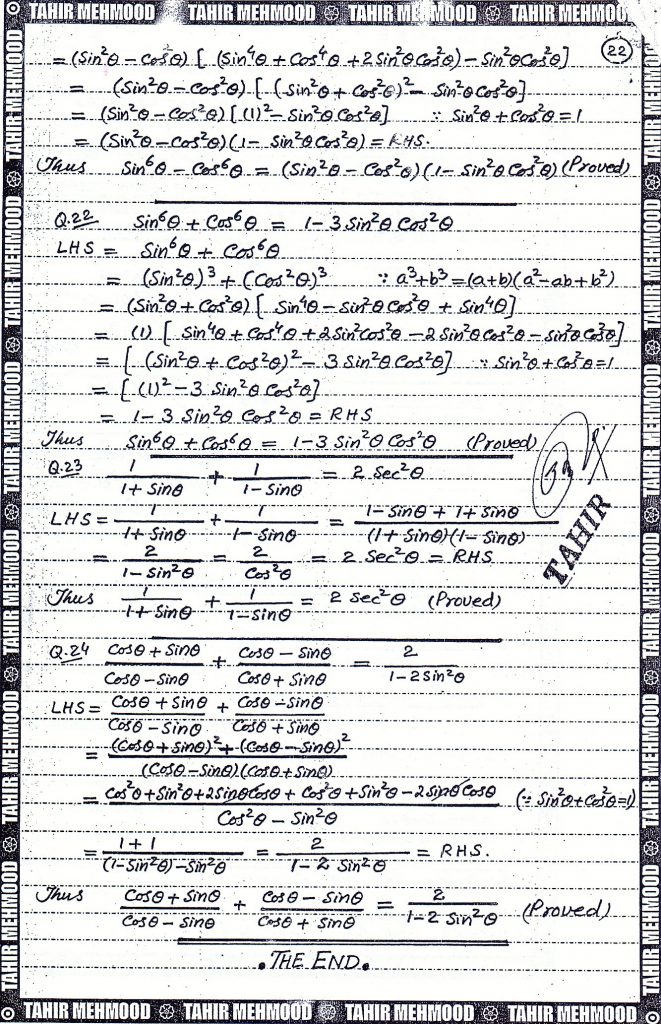 TAHIR MEHMOOD TAHIR MEHMOOD TAHIR MEHMOOD TAHIR MEHMOOD
22
= (Sin²θ – Cos²θ) [ (Sin⁴θ + Cos⁴θ + 2 Sin²θ Cos²θ) – Sin²θ Cos²θ]
= (Sin²θ – Cos²θ) [ (Sin²θ + Cos²θ)² – Sin²θ Cos²θ]
= (Sin²θ – Cos²θ) [ (1)² – Sin²θ Cos²θ] ∵ Sin²θ + Cos²θ = 1
= (Sin²θ – Cos²θ) (1 – Sin²θ Cos²θ) = RHS.
Thus Sin⁶θ – Cos⁶θ = (Sin²θ – Cos²θ) (1 – Sin²θ Cos²θ) (Proved)
Q.22 Sin⁶θ + Cos⁶θ = 1 – 3 Sin²θ Cos²θ
LHS = Sin⁶θ + Cos⁶θ
= (Sin²θ)³ + (Cos²θ)³ ∵ a³+b³ = (a+b)(a²–ab+b²)
= (Sin²θ + Cos²θ) [ Sin⁴θ – Sin²θ Cos²θ + Sin⁴θ]
= (1) [ Sin⁴θ + Cos⁴θ + 2 Sin²Cos²θ – 2 Sin²θ Cos²θ – Sin²θ Cos²θ]
= [ (Sin²θ + Cos²θ)² – 3 Sin²θ Cos²θ] ∵ Sin²θ + Cos²θ = 1
= [ (1)² – 3 Sin²θ Cos²θ]
= 1 – 3 Sin²θ Cos²θ = RHS
Thus Sin⁶θ + Cos⁶θ = 1 – 3 Sin²θ Cos²θ (Proved)
Q.23 1/(1 + Sinθ) + 1/(1 – Sinθ) = 2 Sec²θ
LHS = 1/(1 + Sinθ) + 1/(1 – Sinθ) = (1 – Sinθ + 1 + Sinθ)/((1 + Sinθ)(1 – Sinθ))
TAHIR
= 2/(1 – Sin²θ) = 2/Cos²θ = 2 Sec²θ = RHS
Thus 1/(1 + Sinθ) + 1/(1 – Sinθ) = 2 Sec²θ (Proved)
Q.24 (Cosθ + Sinθ)/(Cosθ – Sinθ) + (Cosθ – Sinθ)/(Cosθ + Sinθ) = 2/(1 – 2 Sin²θ)
LHS = (Cosθ + Sinθ)/(Cosθ – Sinθ) + (Cosθ – Sinθ)/(Cosθ + Sinθ)
= ((Cosθ + Sinθ)² + (Cosθ – Sinθ)²)/((Cosθ – Sinθ)(Cosθ + Sinθ))
= (Cos²θ + Sin²θ + 2 Sinθ Cosθ + Cos²θ + Sin²θ – 2 Sinθ Cosθ)/(Cos²θ – Sin²θ) (∵ Sin²θ + Cos²θ = 1)
= (1 + 1)/((1 – Sin²θ) – Sin²θ) = 2/(1 – 2 Sin²θ) = RHS.
Thus (Cosθ + Sinθ)/(Cosθ – Sinθ) + (Cosθ – Sinθ)/(Cosθ + Sinθ) = 2/(1 – 2 Sin²θ) (Proved)
. THE END .
TAHIR MEHMOOD TAHIR MEHMOOD TAHIR MEHMOOD TAHIR MEHMOOD
TAHIR MEHMOOD TAHIR MEHMOOD TAHIR MEHMOOD TAHIR MEHMOOD TAHIR MEHMOOD TAHIR MEHMOOD
TAHIR MEHMOOD TAHIR MEHMOOD TAHIR MEHMOOD TAHIR MEHMOOD TAHIR MEHMOOD TAHIR MEHMOOD